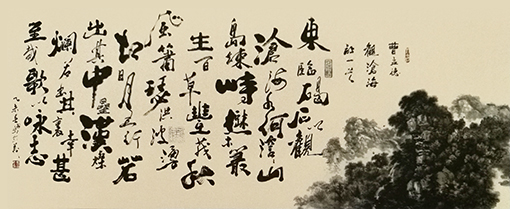 曹孟德
觀滄海
詩一首
東臨碣石以觀
滄海水何澹山
島竦峙樹木叢
生百草豐茂秋
風蕭瑟洪波湧
起日月之行若
出其中星漢燦
爛若出其裏幸甚
至哉歌以詠志